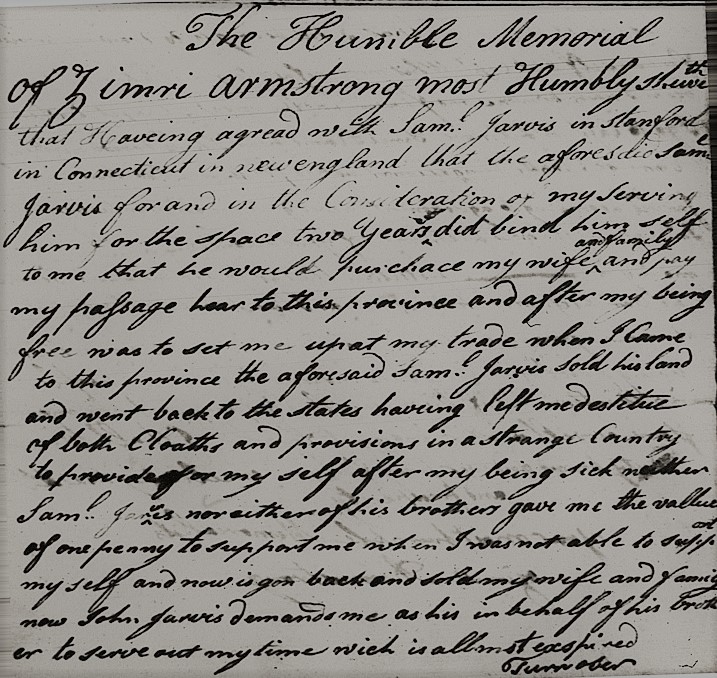 The Humble Memorial
of Zimri armstrong most Humbly sheweth
that Haveing agread with Saml. Jarvis in stanford
in Connecticut in newengland that the aforesdie Saml
Jarvis for and in the Consideration of my serving
him for the space two Years did bind him self
to me that he would purchace my wife and family and pay
my passage hear to this province and after my being
free was to set me up at my trade when I Came
to this province the aforesaid Saml. Jarvis Sold his land
and went back to the states haveing left me destitue
of both Cloaths and provisions in a strange Country
to provide for my self after my being sick neither
Saml. Jarvis nor either of his brothers gave me the vallue
of one penny to support me when I was not able to support
my self and now is gon back and sold my wife and family
now John Jarvis demands me as his in behalf of his broth
er to serve out my time wich is allmost exspired
Turn over